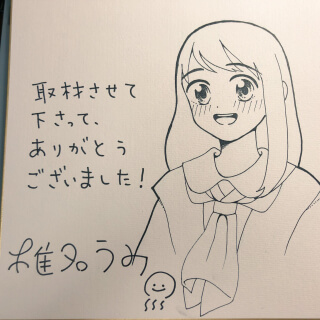 取材させて
下さって、
ありがとう
ございました!
椎名うみ